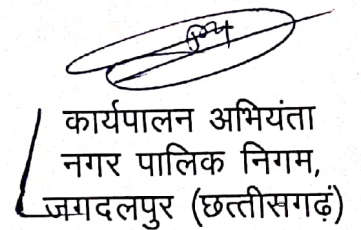 कार्यपालन अभियंता
नगर पालिक निगम,
जगदलपुर (छत्तीसगढ़ं)